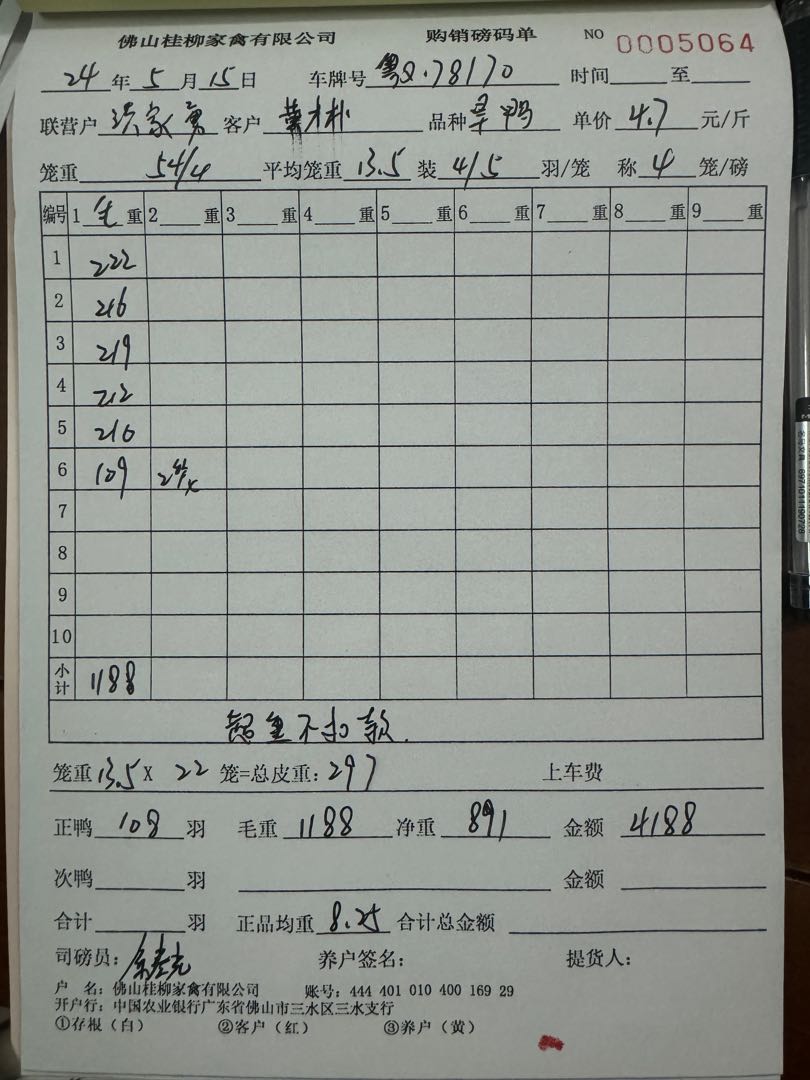 佛山桂柳家禽有限公司 购销磅码单 NO 0005064
24年5月15日 车牌号 粤Q·78170 时间 至
联营户 洪家勇 客户 叶才朴 品种 旱鸭 单价 4.7 元/斤
笼重 54/4 平均笼重 13.5 装 4/5 羽/笼 称 4 笼/磅
编号 1 毛 重 2 重 3 重 4 重 5 重 6 重 7 重 8 重 9 重
1 222
2 216
3 219
4 212
5 210
6 109 2笼
7
8
9
10
小计 1188
超重不扣款.
笼重 13.5 X 22 笼=总皮重: 297 上车费
正鸭 108 羽 毛重 1188 净重 891 金额 4188
次鸭 羽 金额
合计 羽 正品均重 8.25 合计总金额
司磅员: 养户签名: 提货人:
户 名: 佛山桂柳家禽有限公司 账号: 444 401 010 400 169 29
开户行: 中国农业银行广东省佛山市三水区三水支行
①存根(白) ②客户(红) ③养户(黄)
6971011190728